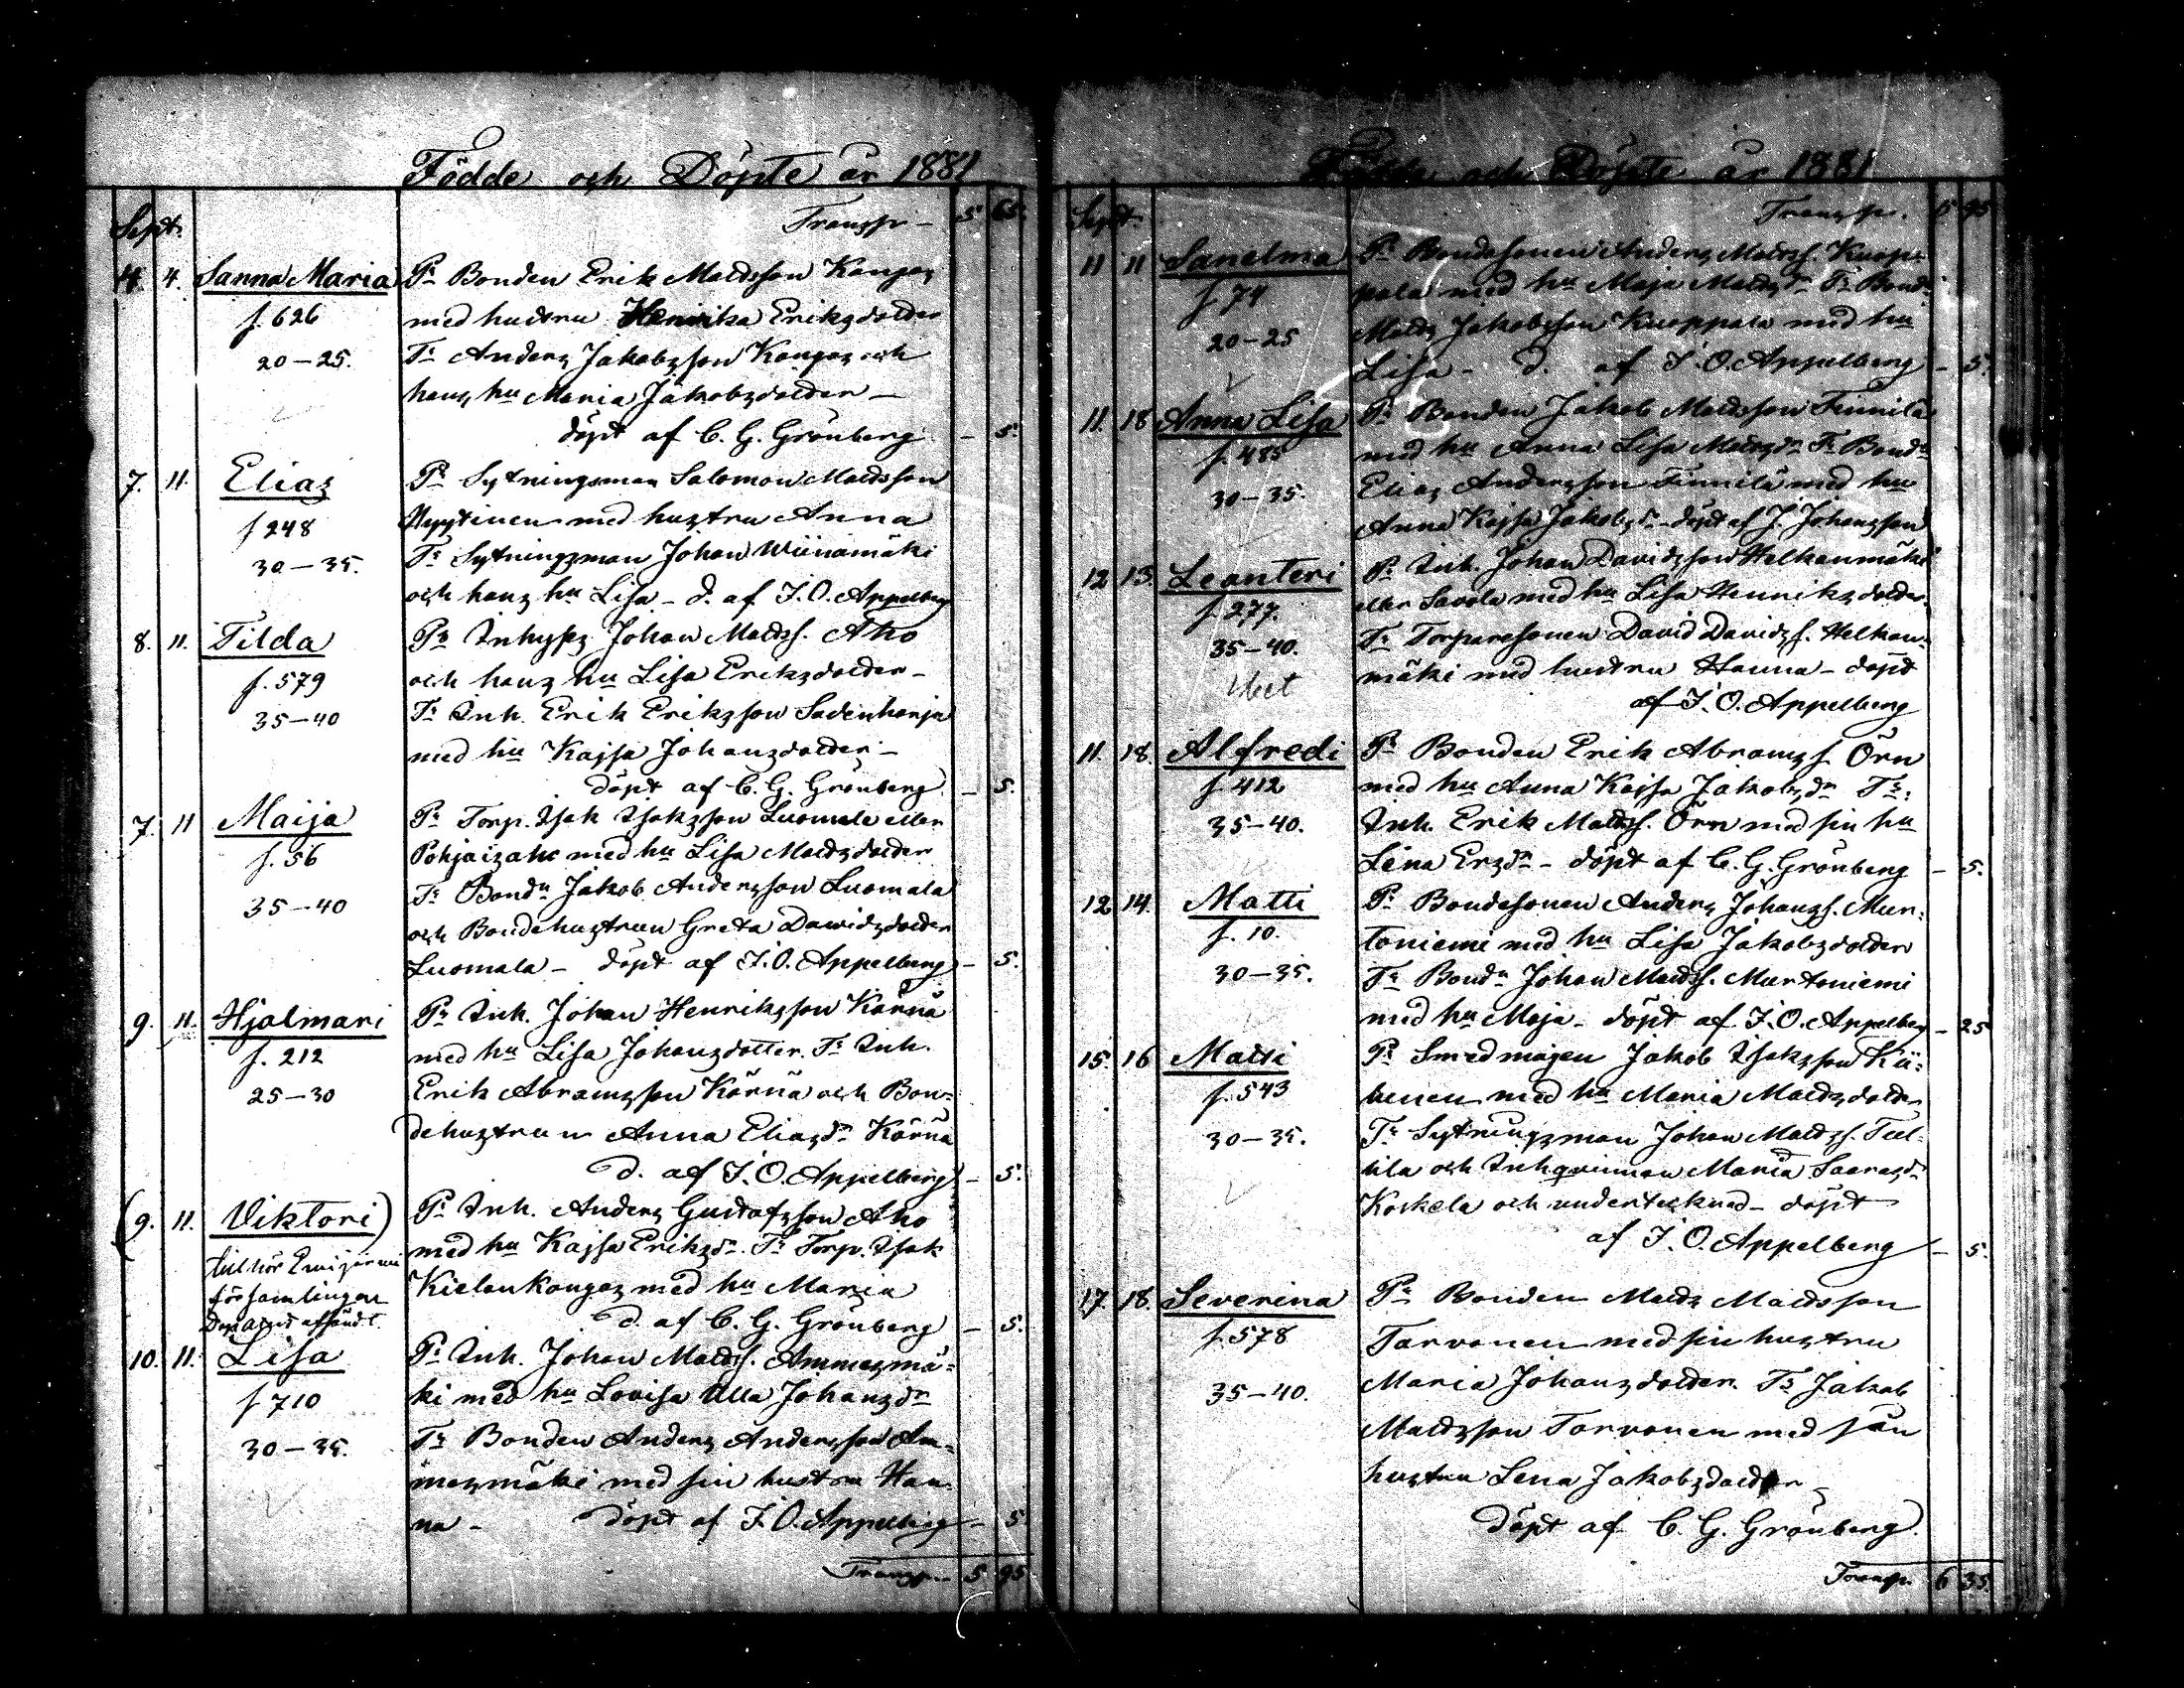 Födde och Döpte år 1881
Sept. Transp. – 5 65.
4. 4. Sanna Maria Pr Bonden Erik Mattsson Kangas
f. 626 med hustru Henrika Eriksdotter
20–25. Tr Anders Jakobsson Kangas och
hans hu Maria Jakobsdotter –
döpt af C. G. Grönberg – 5.
7. 11. Elias Pr Sytningsman Salomon Mattsson
f 248 Nyytinen med hustru Anna
30–35. Tr Sytningsman Johan Wiinamäki
och hans hu Lisa – d. af I. O. Appelberg
8. 11. Tilda Pr Inhyss Johan Matss. Aho
f. 579 och hans hu Lisa Eriksdotter –
35–40 Tr Inh. Erik Eriksson Sadenharju
med hu Kajsa Johansdotter –
döpt af C. G. Grönberg – 5.
7. 11 Maija Pr Torp. Isak Isaksson Luomala eller
f. 56 Pohjaisaho med hu Lisa Mattsdotter
35–40 Tr Bondn Jakob Andersson Luomala
och Bondehustrun Greta Davidsdotter
Luomala – döpt af I. O. Appelberg – 5.
9. 11. Hjalmari Pr Inh. Johan Henriksson Kärnä
f. 212 med hu Lisa Johansdotter. Tr Inh.
25–30 Erik Abramsson Kärnä och Bon-
dehustrun Anna Eliasdr Kärnä
d. af I. O. Appelberg – 5.
(9. 11. Viktori) Pr Inh. Anders Gustafsson Aho
tillhör Evijärvi med hu Kajsa Eriksdr. Tr Torp. Isak
församlingen Kielonkangas med hu Maria
Dopattest afsändt. d. af C. G. Grönberg – 5.
10. 11. Lisa Pr Inh. Johan Matss. Ammesmä-
f 710 ki med hu Lovisa Ulla Johansdr
30–35. Tr Bonden Anders Andersson Am-
mesmäki med sin hustru Han-
na – döpt af I. O. Appelberg – 5.
Transp. 5 95
Födde och Döpte år 1881
Sept. Transp. 5 95
11 11 Sanelma Pr Bondesonen Anders Matss. Kuop-
f 74 pala med hu Maja Matsdr Tr Bond.
20–25 Matts Jakobsson Kuoppala med hu
Lisa – d. af I. O. Appelberg – 5.
11. 18 Anna Lisa Pr Bonden Jakob Mattsson Finnilä
f. 485 med hu Anna Lisa Matsdr Tr Bondn
30–35. Elias Andersson Finnilä med hu
Anna Kajsa Jakobsdr – döpt af J. Johansson
12 13. Leanteri Pr Inh. Johan Davidsson Helkanmäki
f. 277. eller Savola med hu Lisa Henriksdotter.
35–40. Tr Torparesonen David Davidss. Helkan-
mäki med hustru Hanna – döpt
af I. O. Appelberg
11. 18. Alfredi Pr Bonden Erik Abramss. Örn
f 412 med hu Anna Kajsa Jakobsdr Tr.
35–40. Inh. Erik Matss. Örn med sin hu
Lena Ersdr – döpt af C. G. Grönberg – 5.
12 14. Matti Pr Bondesonen Anders Johanss. Mur-
f. 10. toniemi med hu Lisa Jakobsdotter
30–35. Tr Bondn Johan Matss. Murtoniemi
med hu Maja – döpt af I. O. Appelberg – 25
15. 16 Matti Pr Smedmågen Jakob Isaksson Kä-
f. 543 henen med hu Maria Mattsdotter
30–35. Tr Sytningsman Johan Matss.
och Inhqvinnan Maria
Koskela och undertecknad – döpt
af I. O. Appelberg – 5.
17. 18. Severina Pr Bonden Matts Mattsson
f. 578 Tarvonen med sin hustru
35–40. Maria Johansdotter. Tr Jakob
Mattsson Tarvonen med sin
hustru Lena Jakobsdotter –
döpt af C. G. Grönberg.
Transp. 6 35.